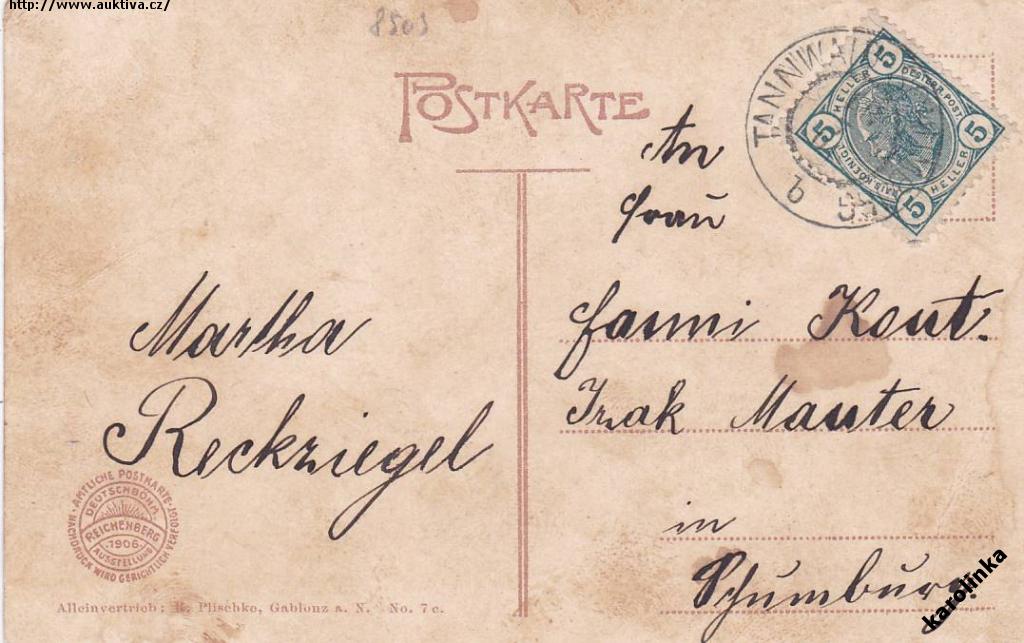 http://www.auktiva.cz/
8503
POSTKARTE
TANNWA
b
5
5
5
5
HELLER
HELLER
An
Frau
Fanni Kout.
Izak Mauter
in
Martha
Reckziegel
AMTLICHE POSTKARTE
NACHDRUCK WIRD GERICHTLICH VERFOLGT
DEUTSCHBÖHM.
REICHENBERG
1906
AUSSTELLUNG
Alleinvertrieb: R. Plischke, Gablonz a. N. No. 7 c.
Schumburg
karolinka